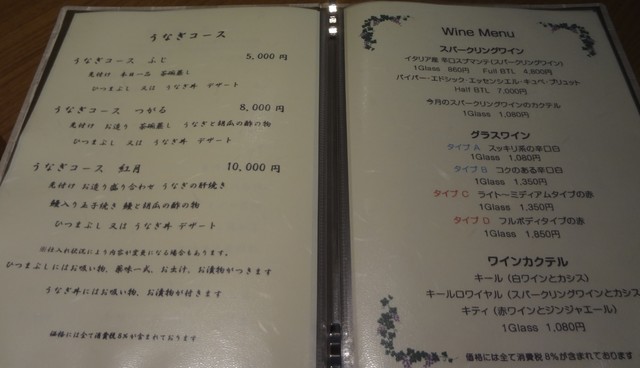 うなぎコース
うなぎコース ふじ 5,000 円
先付け 本日一品 茶碗蒸し
ひつまぶし 又は うなぎ丼 デザート
うなぎコース つがる 8,000 円
先付け お造り 茶碗蒸し うなぎと胡瓜の酢の物
ひつまぶし 又は うなぎ丼 デザート
うなぎコース 紅月 10,000 円
先付け お造り盛り合わせ うなぎの肝焼き
鰻入り玉子焼き 鰻と胡瓜の酢の物
ひつまぶし 又は うなぎ丼 デザート
※仕入れ状況により内容が変更になる場合もあります。
ひつまぶしにはお吸い物、薬味一式、お出汁、お漬物がつきます
うなぎ丼にはお吸い物、お漬物が付きます
価格には全て消費税8%が含まれております
Wine Menu
スパークリングワイン
イタリア産 辛口スプマンテ(スパークリングワイン)
1Glass 860円 Full BTL 4,800円
パイパー・エドシック・エッセンシエル・キュベ・ブリュット
Half BTL 7,000円
今月のスパークリングワインのカクテル
1Glass 1,080円
グラスワイン
タイプ A スッキリ系の辛口白
1Glass 1,080円
タイプ B コクのある辛口白
1Glass 1,350円
タイプ C ライト～ミディアムタイプの赤
1Glass 1,350円
タイプ D フルボディタイプの赤
1Glass 1,850円
ワインカクテル
キール (白ワインとカシス)
キールロワイヤル (スパークリングワインとカシス
キティ (赤ワインとジンジャエール)
1Glass 1,080円
価格には全て消費税8%が含まれております